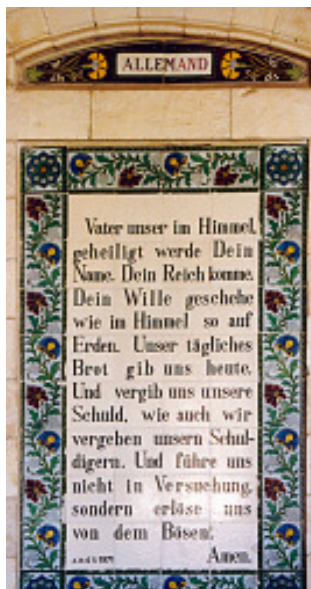 ALLEMAND
Vater unser im Himmel,
geheiligt werde Dein
Name. Dein Reich komme.
Dein Wille geschehe
wie im Himmel so auf
Erden. Unser tägliches
Brot gib uns heute.
Und vergib uns unsere
Schuld, wie auch wir
vergeben unsern Schul-
digern. Und führe uns
nicht in Versuchung,
sondern erlöse uns
von dem Bösen!
Amen.